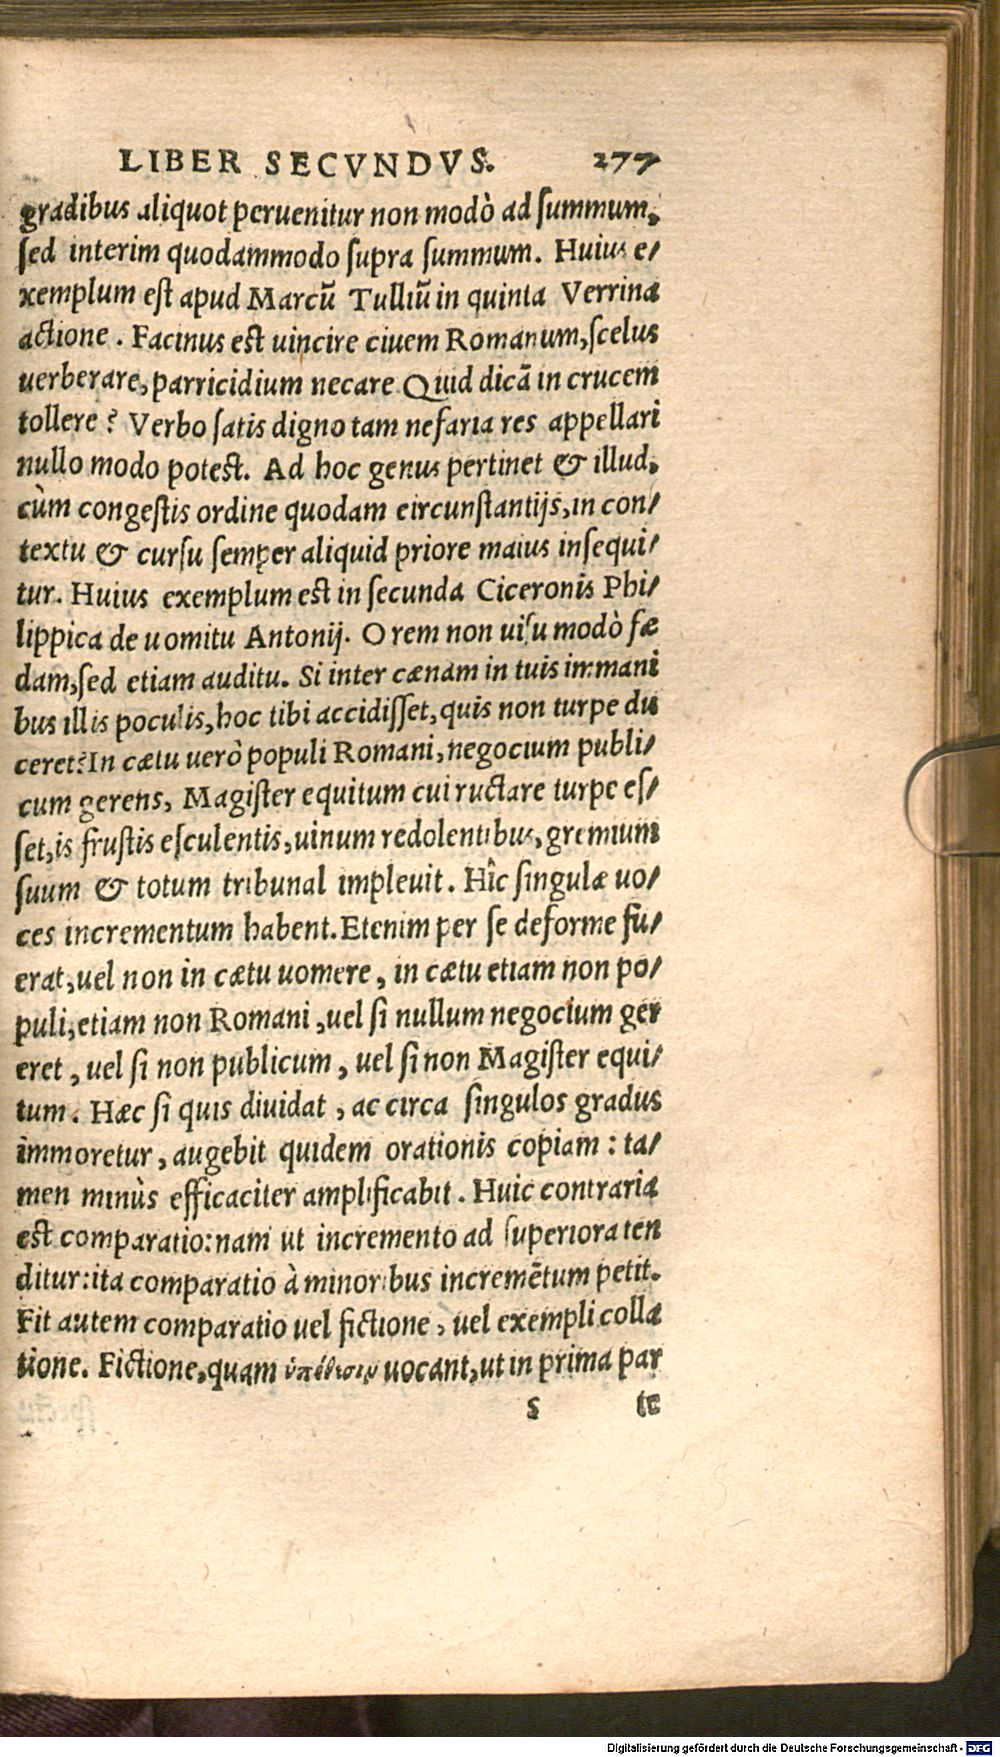 LIBER SECVNDVS. 277
gradibus aliquot peruenitur non modò ad ſummum,
ſed interim quodammodo ſupra ſummum. Huius e/
xemplum eſt apud Marcū Tulliū in quinta Verrina
actione. Facinus est uincire ciuem Romanum, ſcelus
uerberare, parricidium necare Quid dicā in crucem
tollere? Verbo ſatis digno tam nefaria res appellari
nullo modo potest. Ad hoc genus pertinet & illud,
cùm congeſtis ordine quodam circunſtantijs, in con/
textu & curſu ſemper aliquid priore maius inſequi/
tur. Huius exemplum est in ſecunda Ciceronis Phi/
lippica de uomitu Antonij. O rem non uiſu modò fœ
dam, ſed etiam auditu. Si inter cænam in tuis immani
bus illis poculis, hoc tibi accidiſſet, quis non turpe du
ceret? In cœtu uerò populi Romani, negocium publi/
cum gerens, Magiſter equitum cui ructare turpe eſ/
ſet, is fruſtis eſculentis, uinum redolentibus, gremium
ſuum & totum tribunal impleuit. Hîc ſingulæ uo/
ces incrementum habent. Etenim per ſe deforme fu/
erat, uel non in cœtu uomere, in cœtu etiam non po/
puli, etiam non Romani, uel ſi nullum negocium ger
eret, uel ſi non publicum, uel ſi non Magiſter equi/
tum. Hæc ſi quis diuidat, ac circa ſingulos gradus
immoretur, augebit quidem orationis copiam: ta/
men minùs efficaciter amplificabit. Huic contraria
est comparatio: nam ut incremento ad ſuperiora ten
ditur: ita comparatio à minoribus incremētum petit.
Fit autem comparatio uel fictione, uel exempli colla
tione. Fictione, quam ὑπόθεσιν uocant, ut in prima par
S te
Digitalisierung gefördert durch die Deutsche Forschungsgemeinschaft - DFG